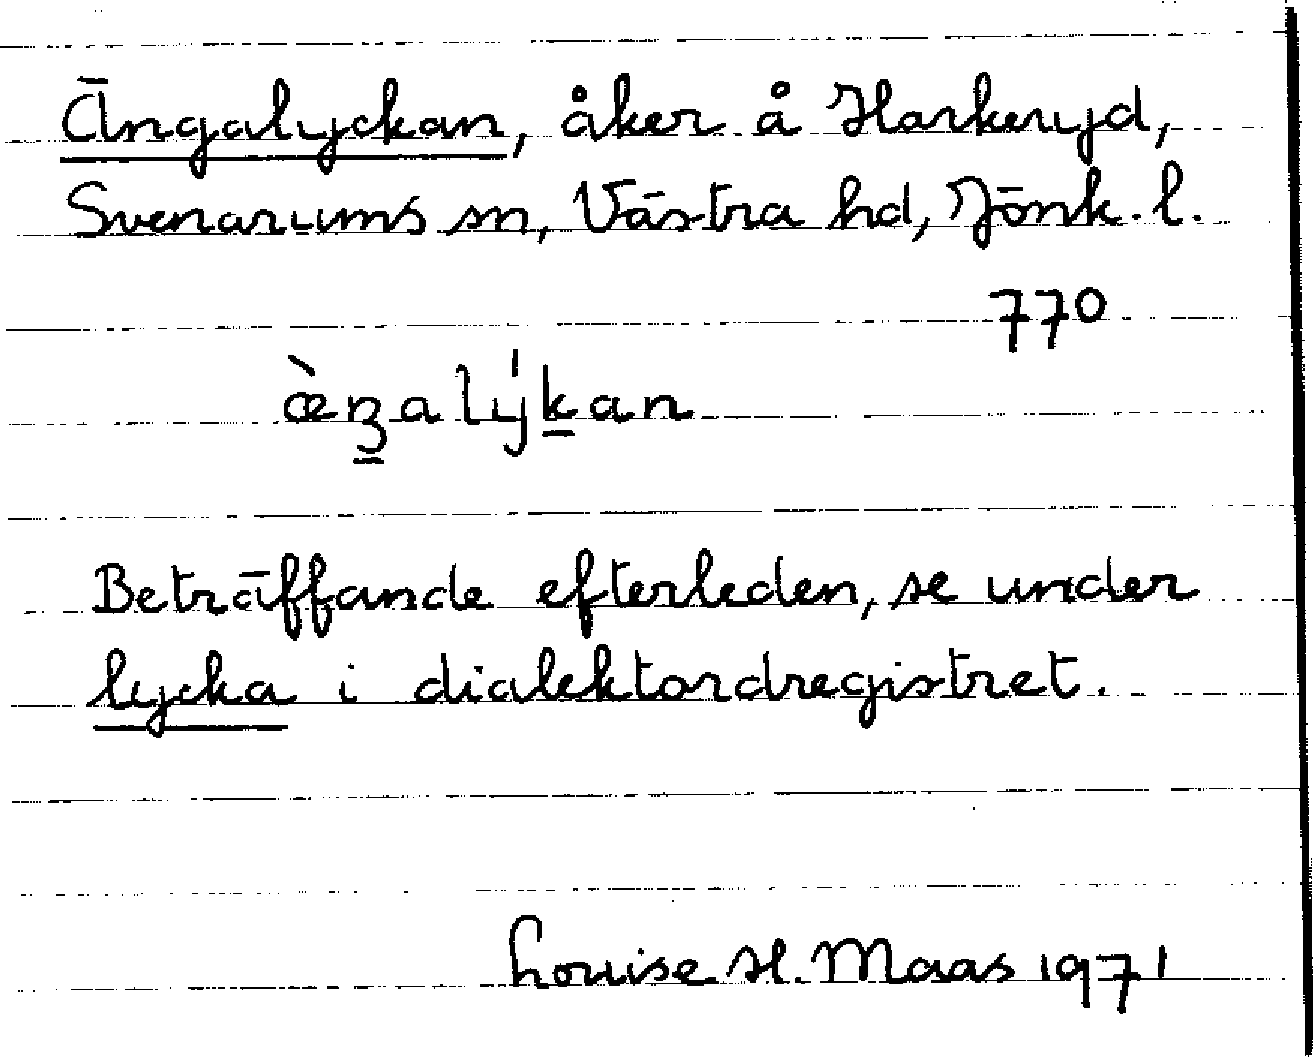 Ängalyckan, åker å Harkeryd,
Svenarums sn, Västra hd, Jönk. l.
770
Beträffande efterleden, se under
lycka i dialektordregistret.
Louise H. Maas 1971